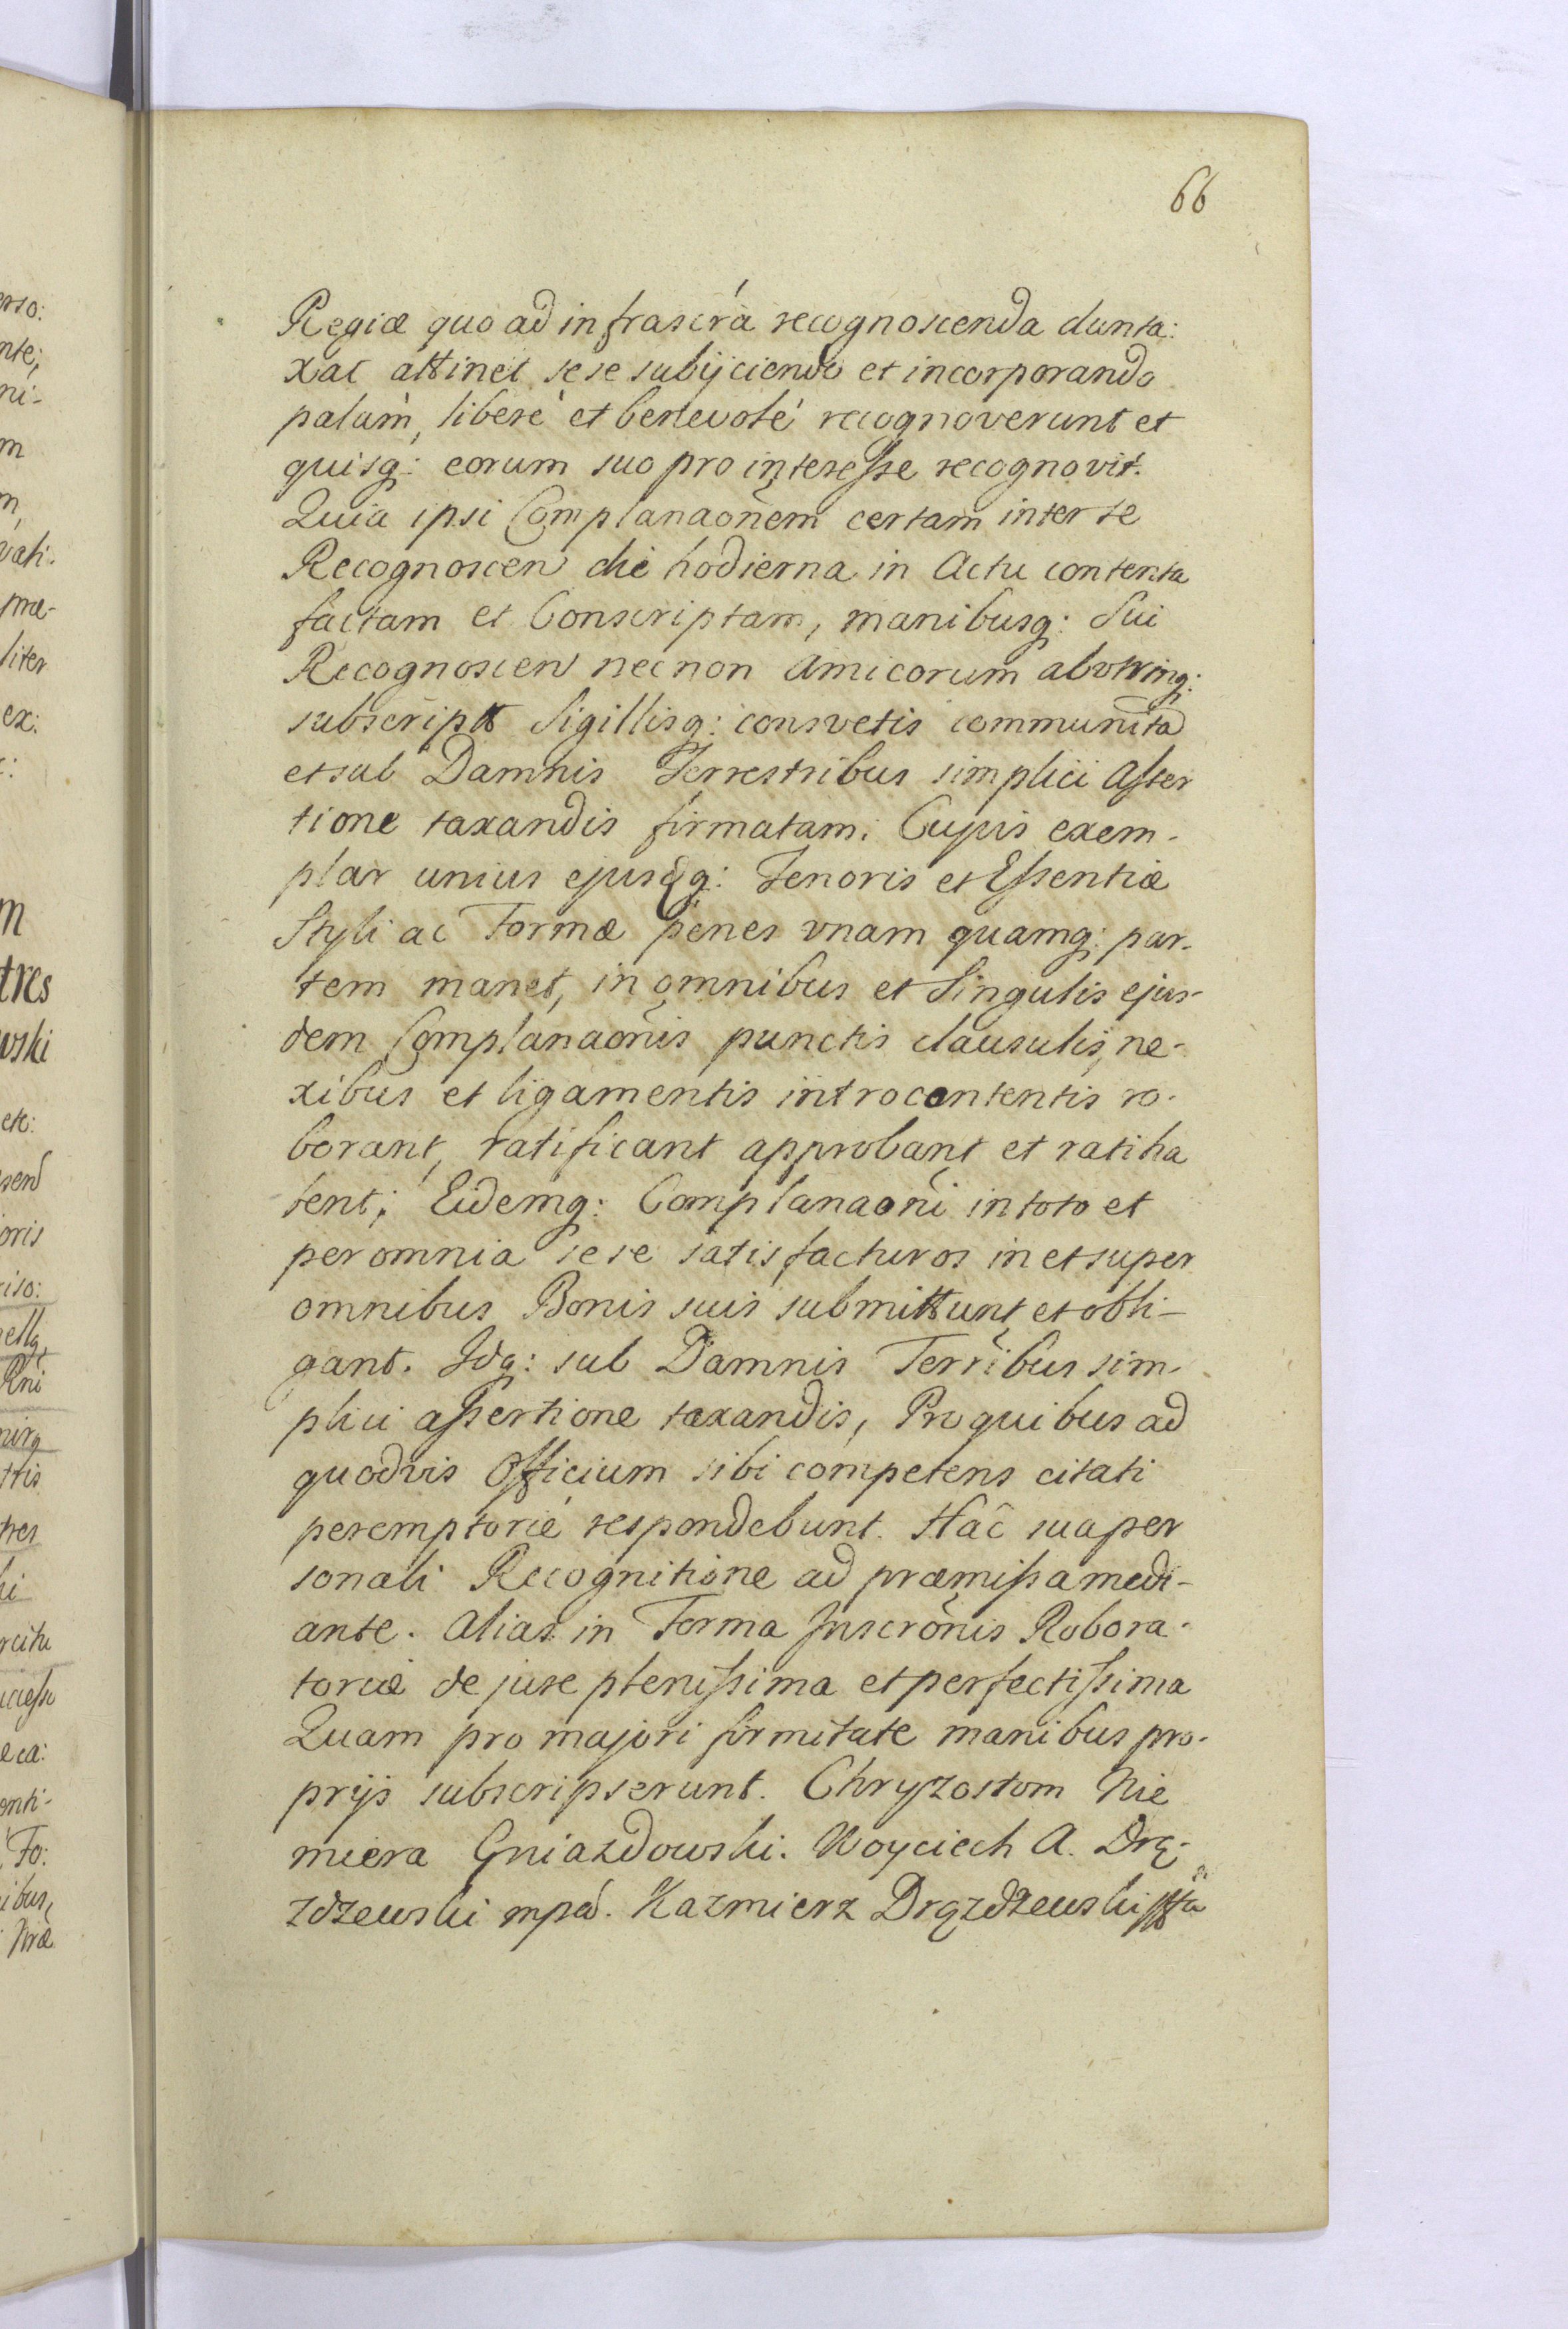 66
Regiæ quo ad infrascrá recognoscenda dunta:
xat attinet sese subijciendo et incorporando
palàm, liberè et benevolé recognoverunt et
quisq: eorum suo pro interesse recognovit.
Quia ipsi Complanaõnem certam inter se
Recognoscen die hodierna in Actu contenta
factam et Conscriptam, manibusq: Sui
Recognoscen nec non Amicorum abutrinq:
subscript Sigillisq: consvetis communita
et sub Damnis Terrestribus simplici Asser
tione taxandis firmatam. Cujus exem-
plar unius ejusdq: Tenoris et Essentiæ
Styli ac Formæ penes vnam quamq: par-
tem manet, in omnibus et Singulis ejus-
dem Complanaõnis punctis clausulis, ne-
xibus et ligamentis introcontentis ro-
borant, ratificant approbant et ratiha
bent; Eidemq: Complanaoni in toto et
per omnia sese satisfacturos in et super
omnibus Bonis suis submittunt et obli-
gant. Idq: sub Damnis Terribus sim-
plici assertione taxandis, Pro quibus ad
quodvis Officium sibi competens citati
peremptorié respondebunt. Hac sua per
sonali Recognitione ad præmissa medi-
ante. Alias in Forma Inscrõnis Robora-
toriæ de jure plenissima et perfectissima
Quam pro majori firmitate manibus pro-
prijs subscripserunt. Chryzostom Nie
miera Gniazdowski. Woyciech A. Drą-
zdzewski mpa. Kazmierz Drązdzewski
erso:
nte;
ni-
m
vati-
præ-
liter
ex:
m
tres
wski
etc:
oris
riso:
ella
Rni
ttis
tres
hi
rcitu
eca:
enti-
Fo:
ibus,